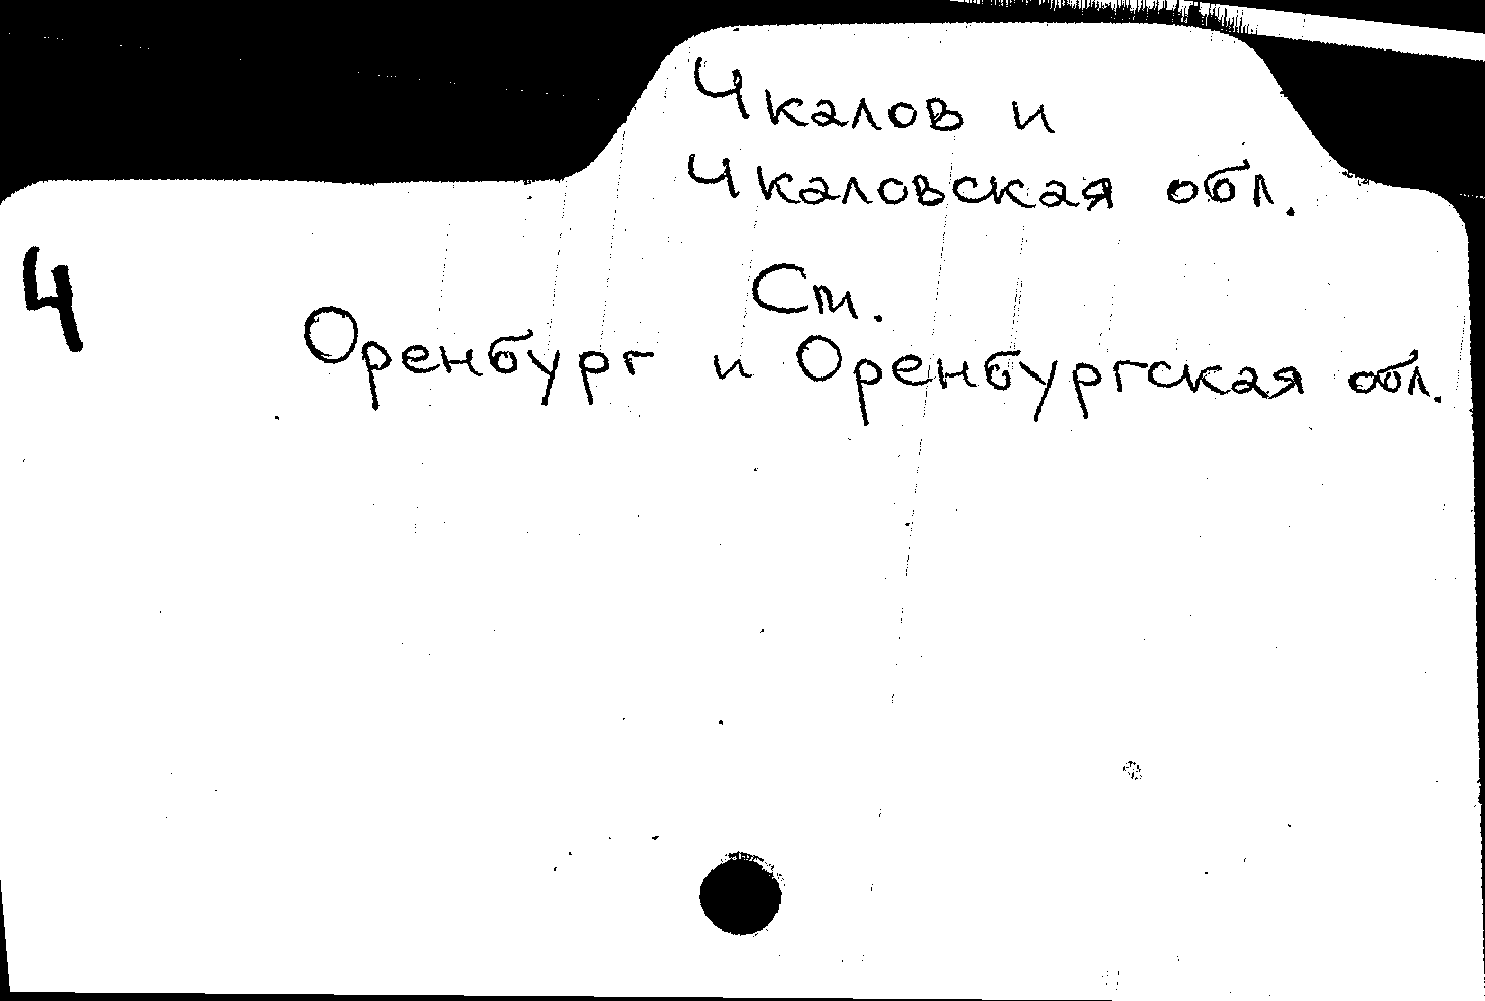 Чкалов и
Чкаловская обл.
Ч
См.
Оренбург и Оренбургская обл.